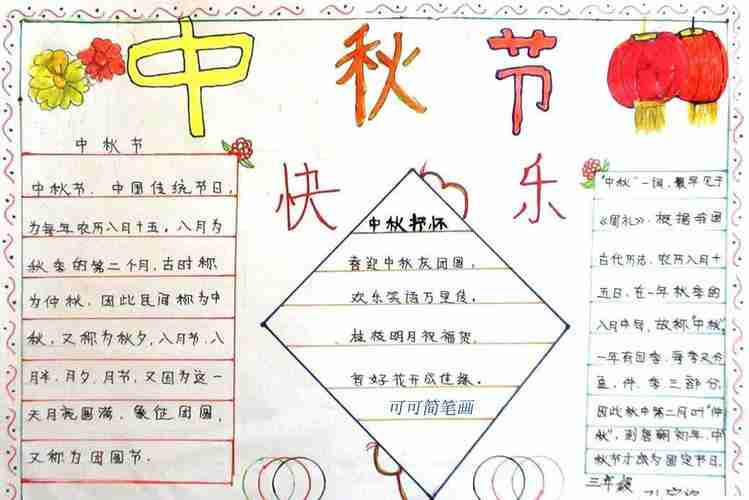 中秋节
快乐
中秋节
中秋节、中国传统节日,
为每年农历八月十五。八月为
秋季的第二个月,古时称
为仲秋,因此民间称为中
秋,又称为秋夕,八月节,八
月半,月夕,月节,又因为这一
天月亮圆满,象征团圆,
又称为团圆节.
中秋抒怀
喜迎中秋友团圆,
欢乐笑语万里传。
桂枝明月祝福贺,
贺好花开成佳缘。
可可简笔画
"中秋"一词,最早见于
《周礼》.根据我国
古代历法,农历八月十
五日、在一年秋季的
八月中旬,故称"中秋".
一年有四季,每季又分
孟、仲、季三部分,
因此秋中第二月叫"仲
秋",到唐朝初年,中
秋节才成为固定节日.
三年级